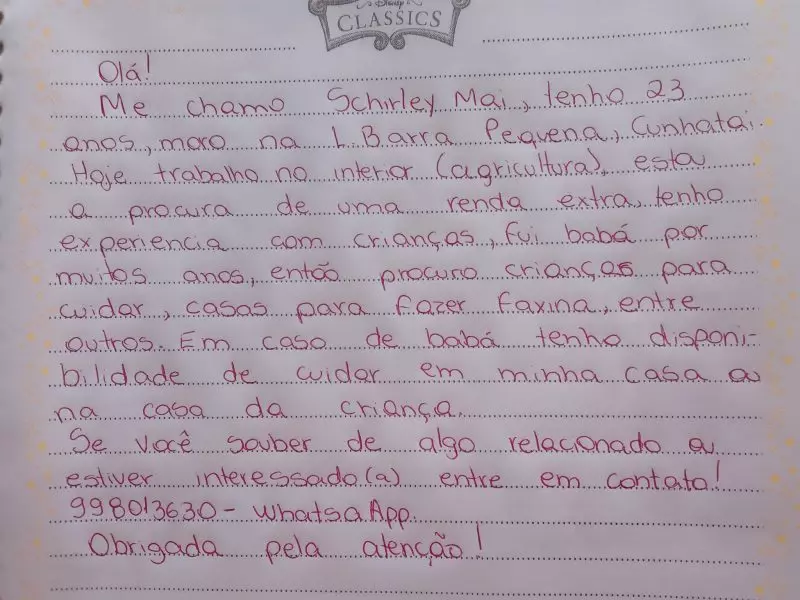 Disney
CLASSICS
Olá!
Me chamo Schirley Mai, tenho 23
anos, moro na L. Barra Pequena, Cunhataí.
Hoje trabalho no interior (agricultura), estou
a procura de uma renda extra, tenho
experiencia com crianças, fui babá por
muitos anos, então procuro crianças para
cuidar, casas para fazer faxina, entre
outros. Em caso de babá tenho disponi-
bilidade de cuidar em minha casa ou
na casa da criança.
Se você souber de algo relacionado ou
estiver interessado(a) entre em contato!
998013630 - WhatsaApp.
Obrigada pela atenção!